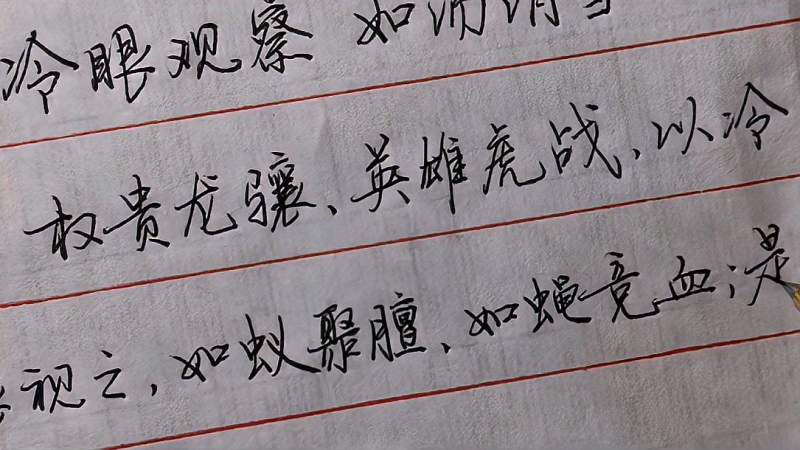 冷眼观察 如汤消雪
权贵龙骧、英雄虎战、以冷
视之,如蚁聚膻,如蝇竞血;是